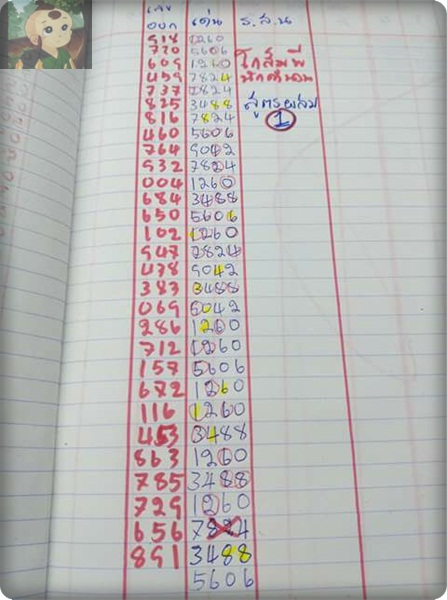 เลข เด่น ร.ส.น
ออก
918 1260
770 5606
609 1260 โกสัมพี
459 7824 นักคำนวณ
737 7824
825 3488 สูตรผสม
816 7824 1
460 5606
764 9042
932 7824
004 1260
684 3488
650 5606
102 1260
947 7824
478 9042
387 3488
069 9042
286 1260
712 1260
157 5606
672 1260
116 1260
453 3488
863 1260
785 3488
729 1260
656 7824
891 3488
5606